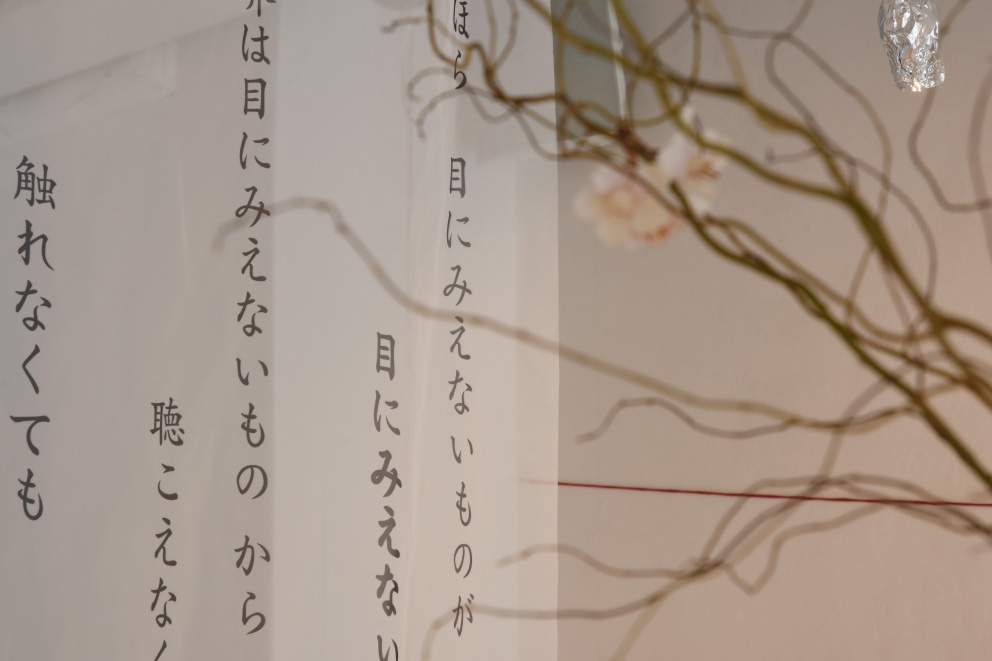 ほら 目にみえないものが
目にみえない
は目にみえないもの から
聴こえなく
触れなくても